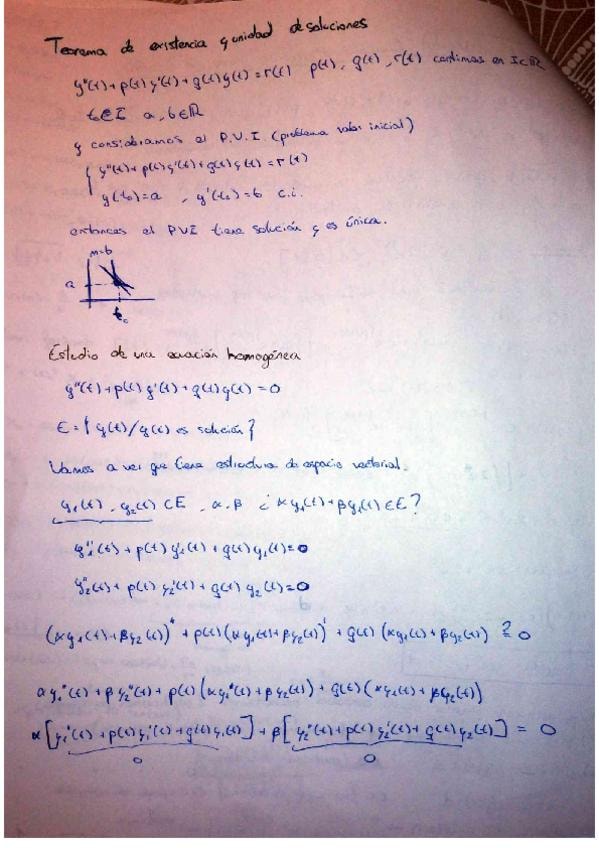 Teorema de existencia y unidad de soluciones
y''(t) + p(t) y'(t) + q(t) y(t) = r(t) p(t), q(t), r(t) continuas en I⊂ℝ
t₀∈I a, b∈ℝ
y consideramos el P.V.I (problema valor inicial)
{ y''(t) + p(t) y'(t) + q(t) y(t) = r(t)
y(t₀)=a , y'(t₀)=b c.i.
entonces el PVI tiene solución y es única.
m=b
a
t₀
Estudio de una ecuación homogénea
y''(t) + p(t) y'(t) + q(t) y(t) = 0
E = { y(t) / y(t) es solución }
Vamos a ver que tiene estructura de espacio vectorial.
y₁(t), y₂(t) ⊂E, α, β ¿ αy₁(t) + βy₂(t) ∈E?
y₁''(t) + p(t) y₁'(t) + q(t) y₁(t) = 0
y₂''(t) + p(t) y₂'(t) + q(t) y₂(t) = 0
(αy₁(t) + βy₂(t))'' + p(t) (αy₁(t) + βy₂(t))' + q(t) (αy₁(t) + βy₂(t)) ≟ 0
αy₁''(t) + βy₂''(t) + p(t) (αy₁'(t) + βy₂'(t)) + q(t) (αy₁(t) + βy₂(t))
α[y₁''(t) + p(t) y₁'(t) + q(t) y₁(t)] + β[y₂''(t) + p(t) y₂'(t) + q(t) y₂(t)] = 0
0 0